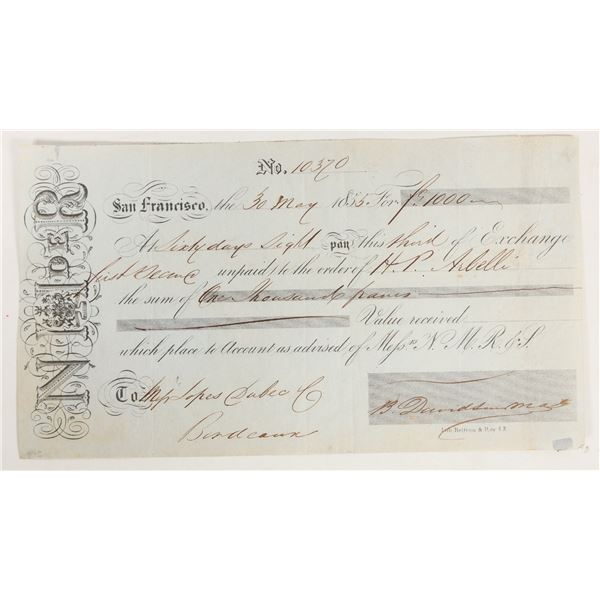 No. 10370
San Francisco, the 30 May 1855 For fs 1000
At Sixty days Sight pay this third of Exchange
first & secd unpaid) to the order of H. P. Arbelli
the sum of One Thousand francs
Value received
which place to Account as advised of Messrs N. M. R. & S.
To Messrs Lopes Dubec & Co
Bordeaux
B Davidson
Lith. Britton & Rey S.F.